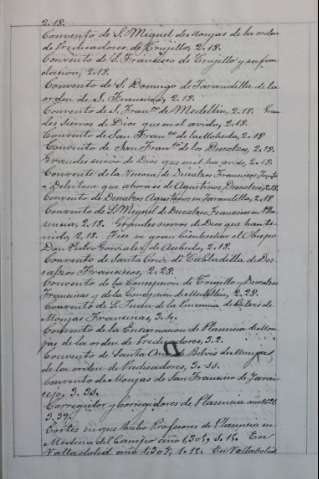 2. 18.
Convento de S. Miguel de Monjas de la orden
de Predicadores de Trujillo, 2. 18.
Convento de S. Francisco de Trujillo y su fun
dacion, 2. 19.
Convento de S. Domingo de Jarandilla de la
orden de S. Francisco, 2. 18.
Convento de S. Franco. de Medellin, 2. 18.
des siervos de Dios que en el ando, 2. 19.
Convento de San Franco. de la 2. 18
Convento de San Franco. de los Descalzos, 2. 19.
Grandes siervos de Dios que en el ha avido, 2. 19.
Convento de la de Descalzos Franciscos
que ahora es de Agustinos Descalzos, 2. 18.
Convento de Descalzos Agustinos en Jarandilla, 2. 18
Convento de S. Miguel de Descalzos Franciscos en Pla
sencia, 2. 18. Grandes siervos de Dios que han te
nido, 2. 18. Fue su gran bienhechor el Obispo
Don Pedro Gonzalez de Acebedo, 2. 18.
Convento de Santa Cruz de Tabladilla de Des
calzos Franciscos, 2. 28.
Convento de la Concepcion de Trujillo, Descalzos
Franciscos y de la Concepcion de Medellin, 2. 28.
Convento de S. Juan de la Penitencia de de
Monjas Franciscas, 3. 4.
Convento de la Encarnacion de Plasencia de Mon
jas de la orden de Predicadores, 3. 2.
Convento de Santa Ana de Belvis de Monjas,
de la orden de Predicadores, 3. 33.
Convento de Monjas de San Francisco de Jarai
cejo, 3. 38.
Corregidor y Corregidores de Plasencia
3. 39.
Cortes en que hubo Procuradores de Plasencia en
Medina del Campo año 1305, 1. 12. En
Valladolid año 1307, 1. 12. En Valladolid